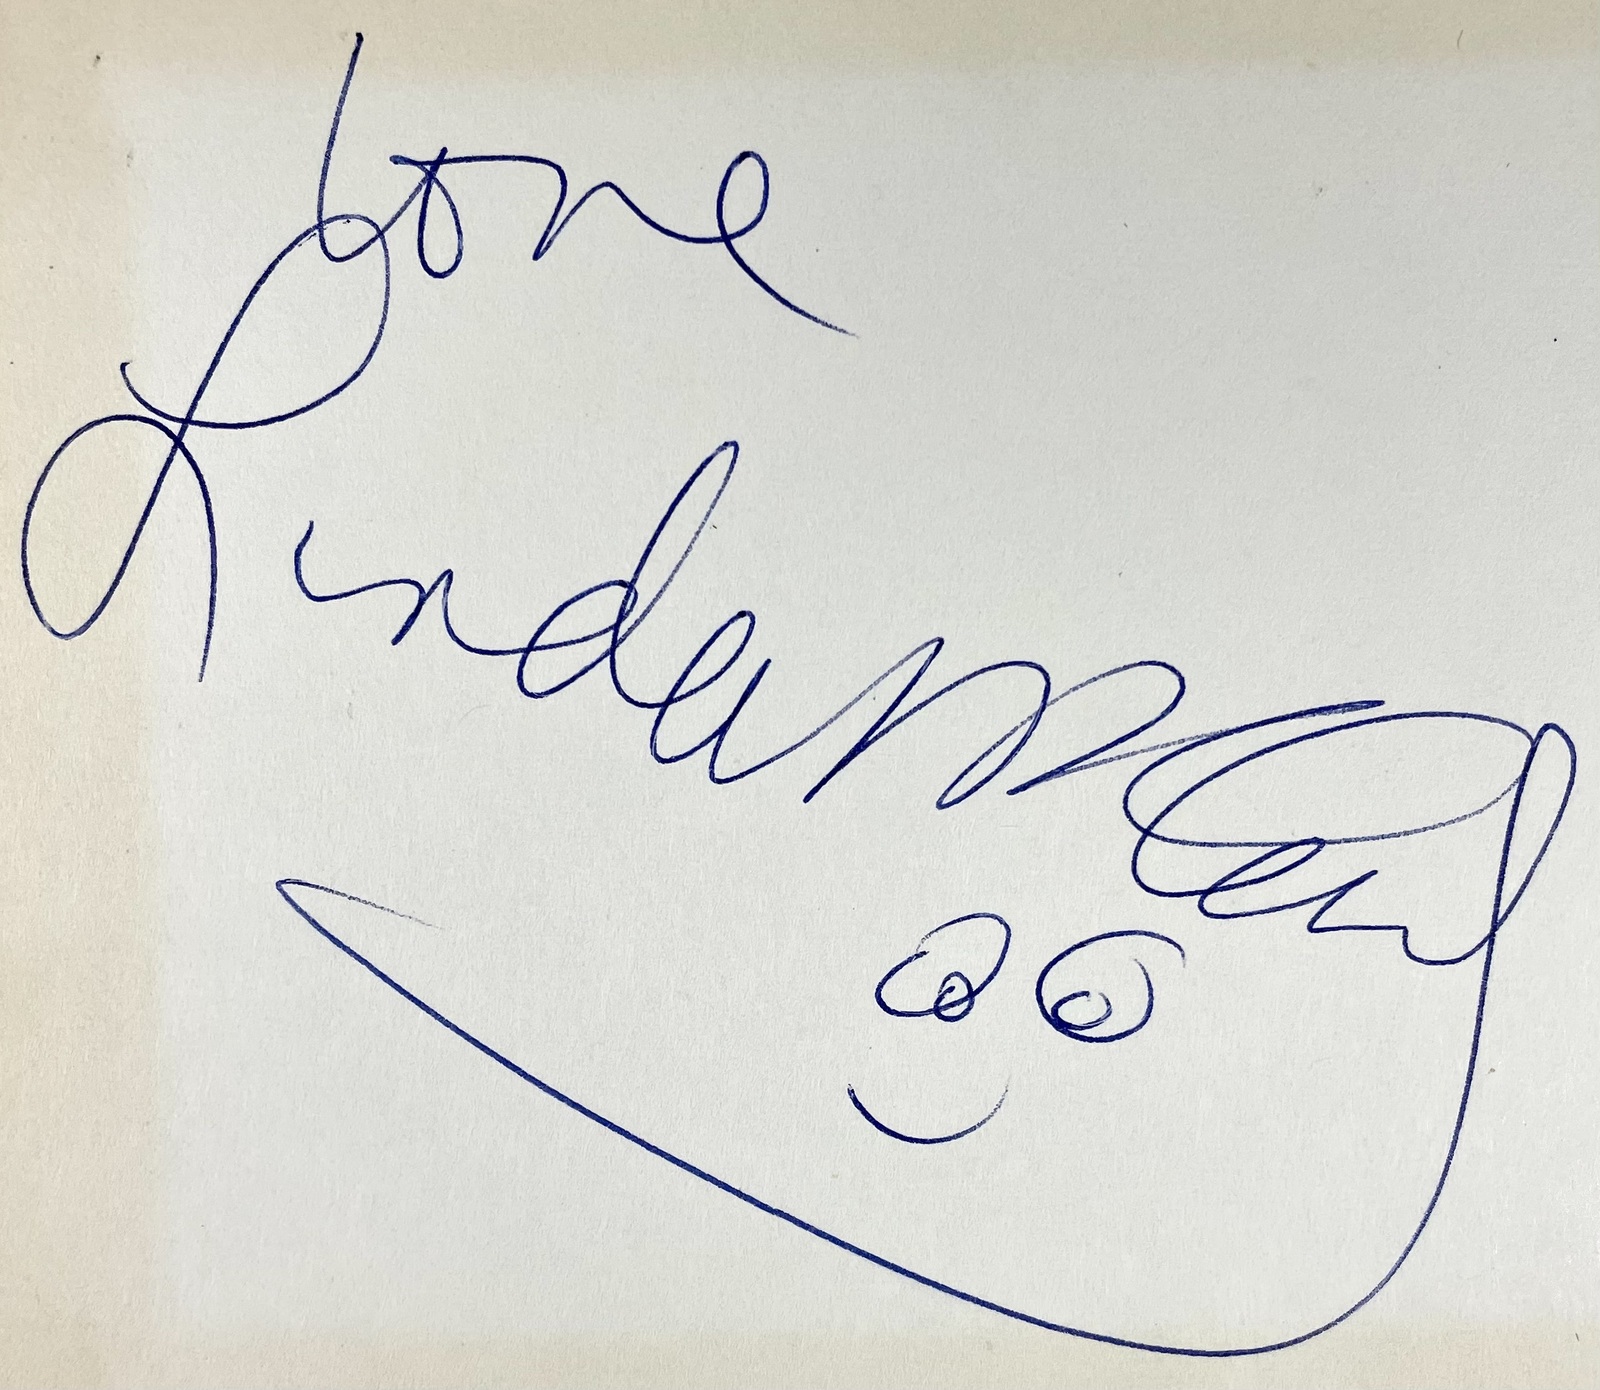 love
Linda McCartney